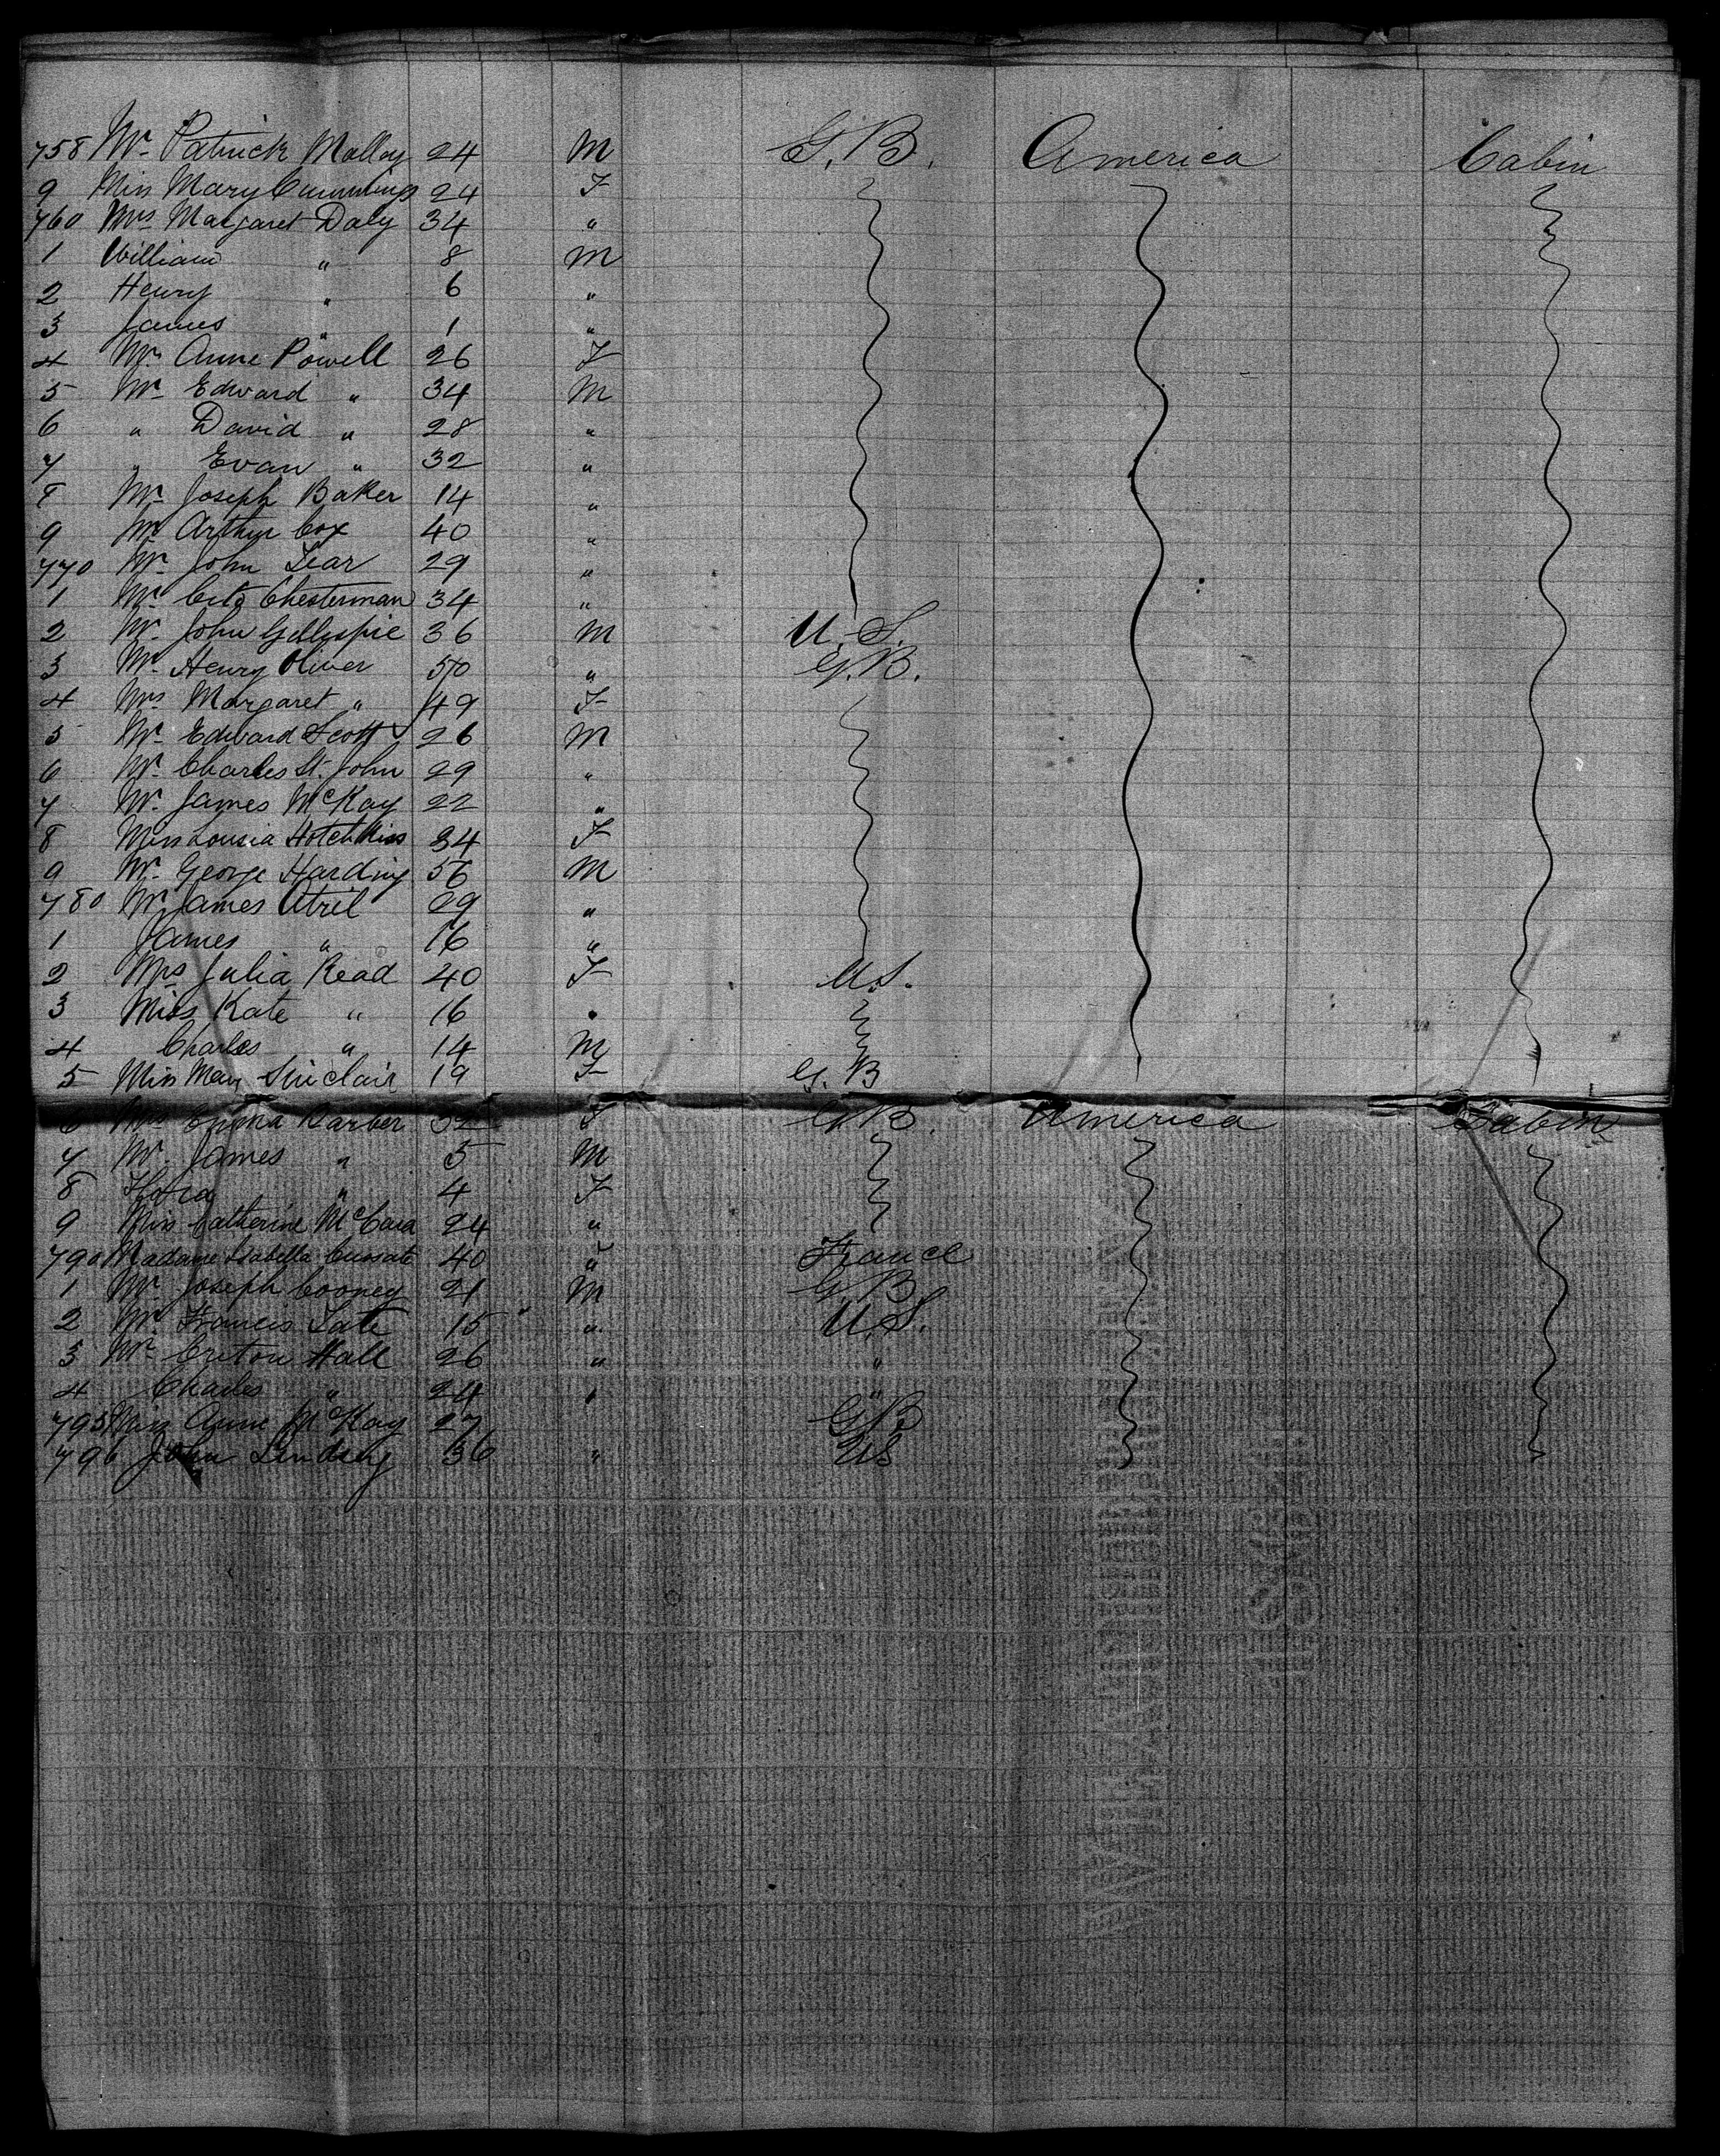 758 Mr Patrick Malloy 24 M G.B. America Cabin
9 Miss Mary Cummings 24 F
760 Mrs Margaret Daly 34 "
1 William " 8 M
2 Henry " 6 "
3 James " 1 "
4 Mrs Anne Powell 26 F
5 Mr Edward " 34 M
6 " David " 28 "
7 " Evan " 32 "
8 Mr Joseph Baker 14 "
9 Mr Arthur Cox 40 "
770 Mr John Lear 29 "
1 Mr Chesterman 34 "
2 Mr John Gillespie 36 M U.S.
3 Mr Henry Oliver 50 " G.B.
4 Mrs Margaret " 49 F
5 Mr Edward Scott 26 M
6 Mr Charles St. John 29 "
7 Mr James McKay 22 "
8 Miss Lousia Hotchkiss 34 F
9 Mr George Harding 56 M
780 Mr James Utril 29 "
1 James " 16 "
2 Mrs Julia Read 40 F U.S.
3 Miss Kate " 16 "
4 Charles " 14 M
5 Miss Mary Sinclair 19 F G.B
6 Mrs Emma Barber 32 F G.B. America Cabin
7 Mr James " 5 M
8 " 4 F
9 Miss Catherine McCara 24 "
790 Madame Isabella 40 " France
1 Mr Joseph Cooney 21 M G.B.
2 Mr Francis Tate 15 " U.S.
3 Mr Creton Hall 26 " "
4 Charles " 24 " "
795 Miss Anne McKay 27 G.B
796 John Lindsay 36 " US